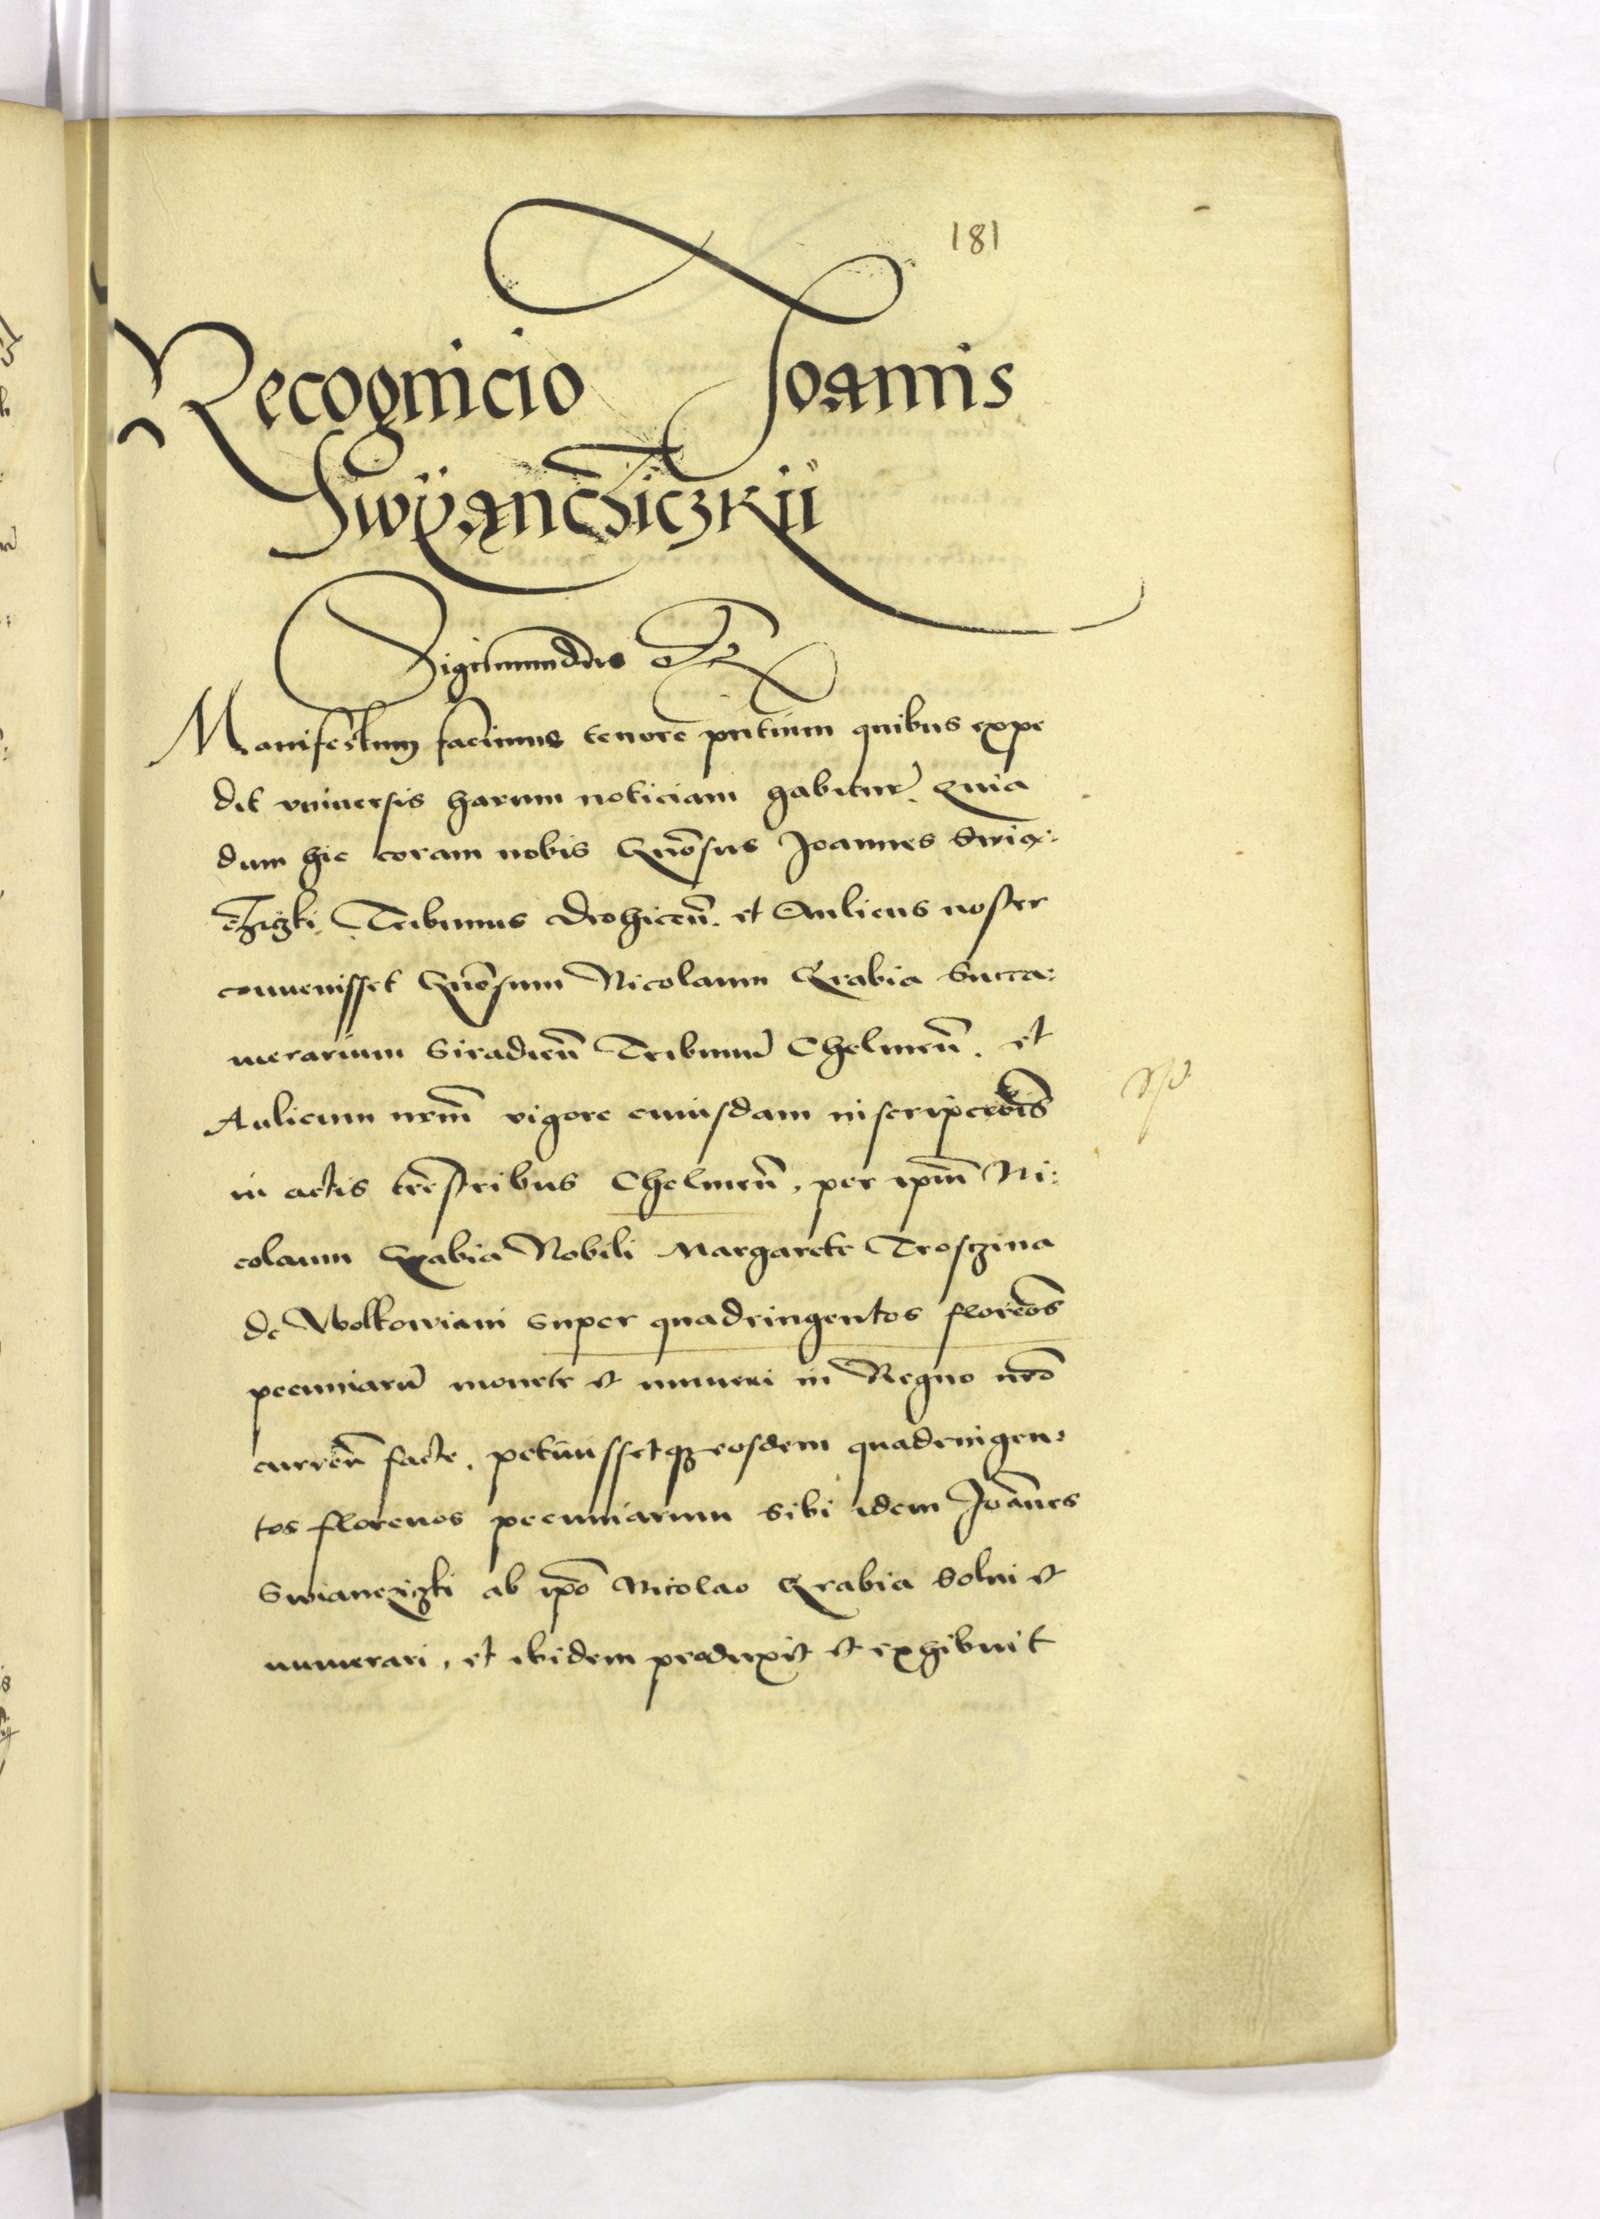 181
Recognicio Joannis
Swÿanczÿczkij
Sigismundus Etc
Manifestum facimus tenore pntium quibus expe
dit vniuersis harum noticiam habitur. Quia
dum hic coram nobis Gnosus Joannes Swia-
cziczki Tribunus Drohicen. et Aulicus noster
conuenisset Gnosum Nicolaum Grabia Succa-
merarium Siradien Tribunu Chelmen. et
Aulicum nrm vigore cuiusdam inscripcionis
in actis trestribus Chelmen, per ipm Ni-
colaum Grabia Nobili Margarete Trosczina
de Wolkowiani super quadringentos florenos
pecuniaru monete et numeri in Regno nro
curren facte, petiuissetq eosdem quadringen-
tos florenos pecuniarum sibi idem Joannes
Swianczyczki ab ipo Nicolao Grabia solui et
numerari, et ibidem produxit et exhibuit